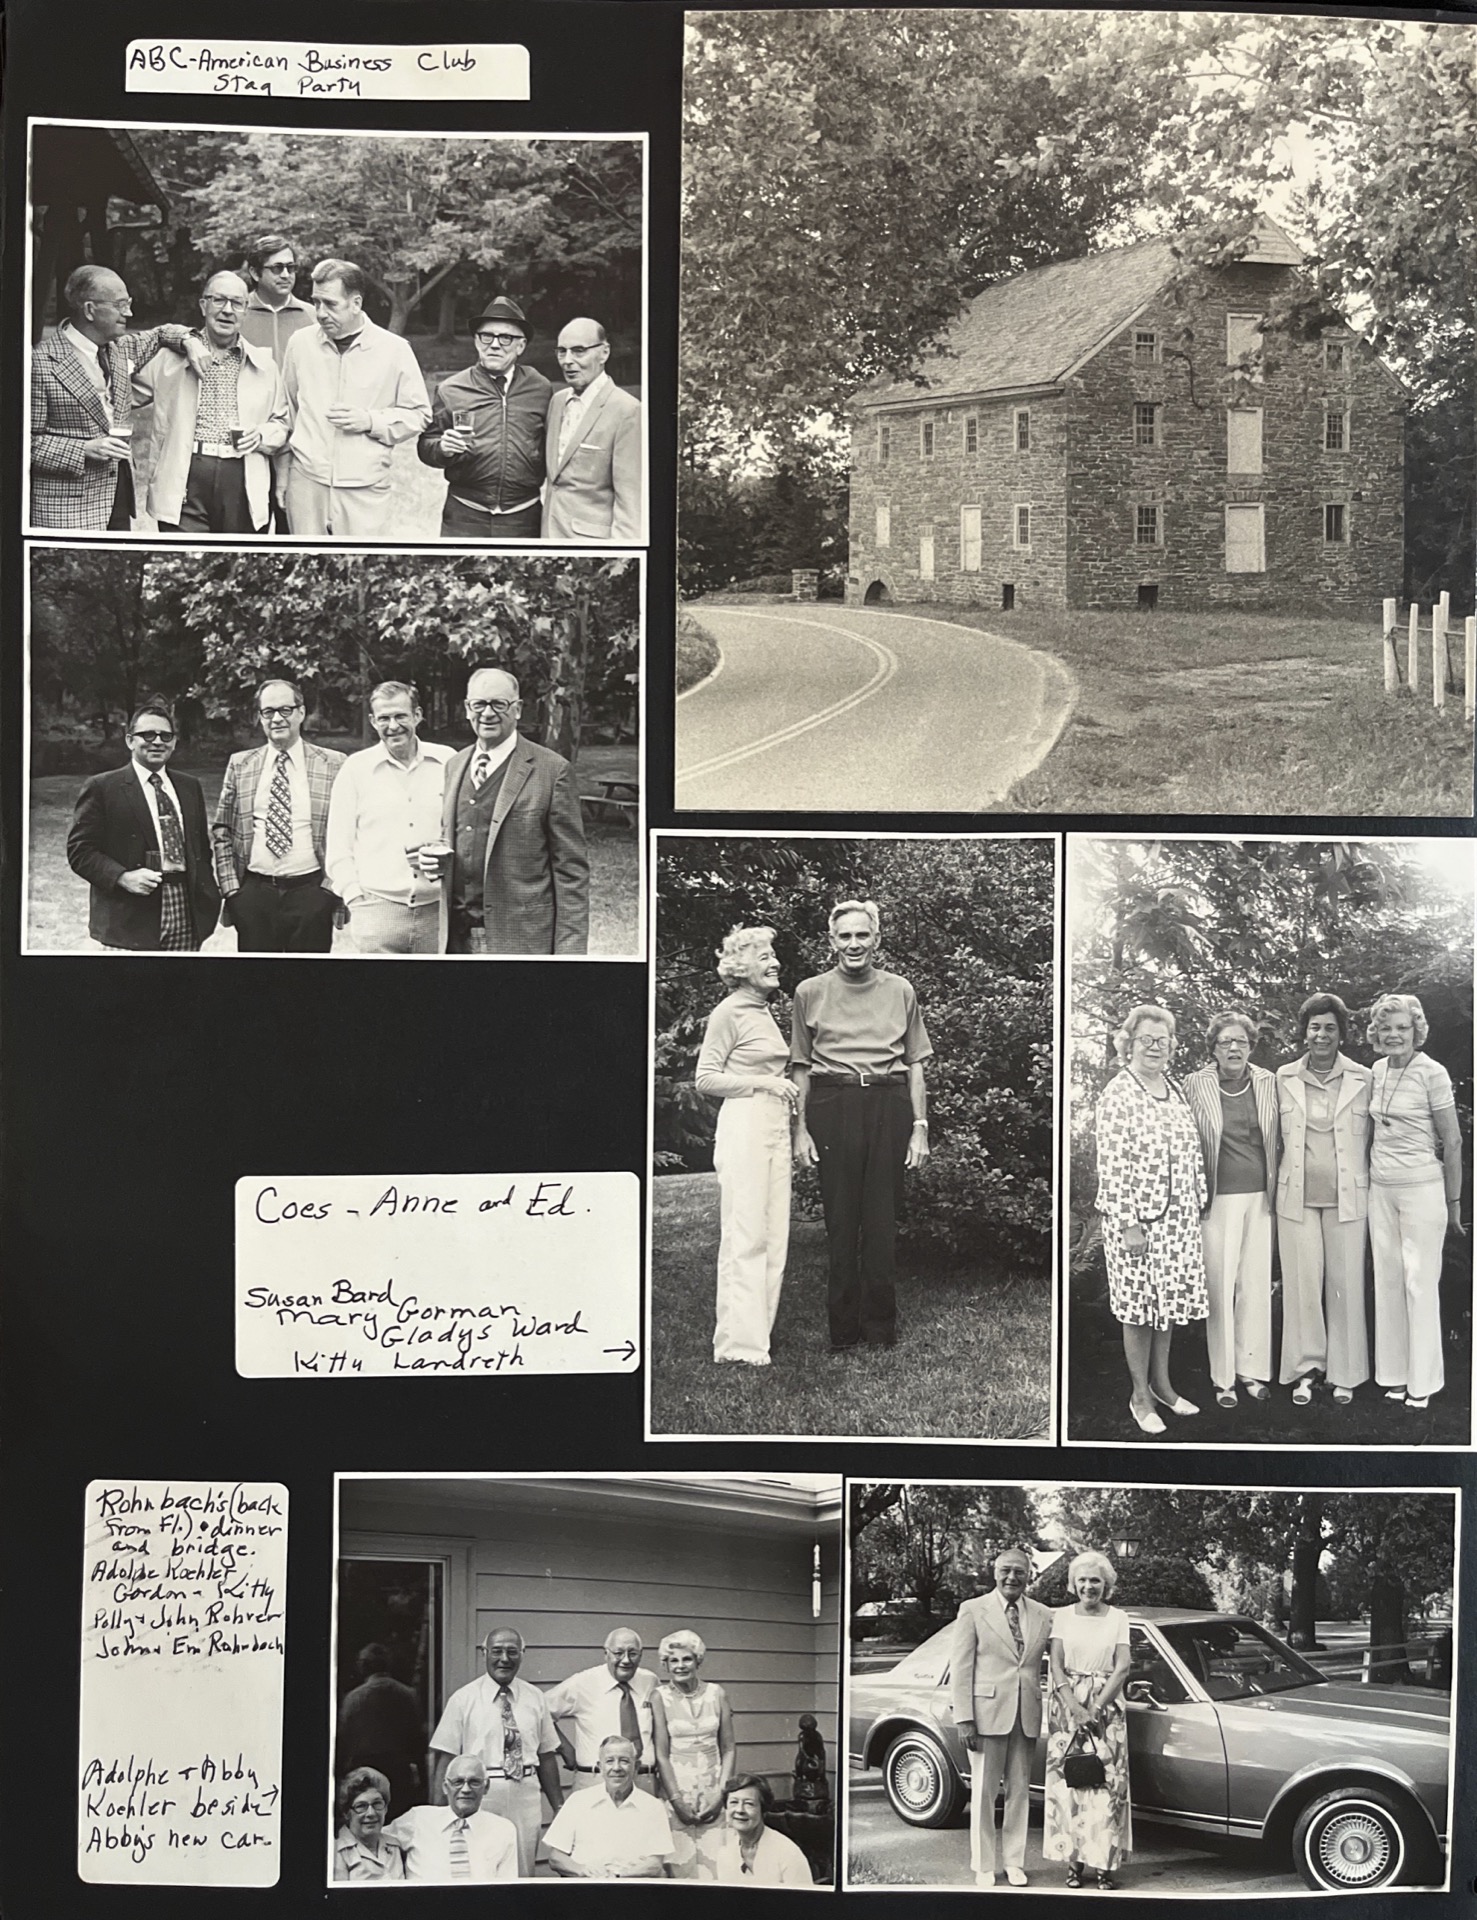 ABC-American Business Club
Stag Party
Coes - Anne and Ed.
Susan Bard
Mary Gorman
Gladys Ward
Kitty Landreth →
Rohrbach's (back
from Fl.) • dinner
and bridge.
Adolphe Koehler
Gordon + Kitty
Polly + John Rohrer
John + Em Rohrbach
Adolphe + Abby
Koehler beside →
Abby's new car.